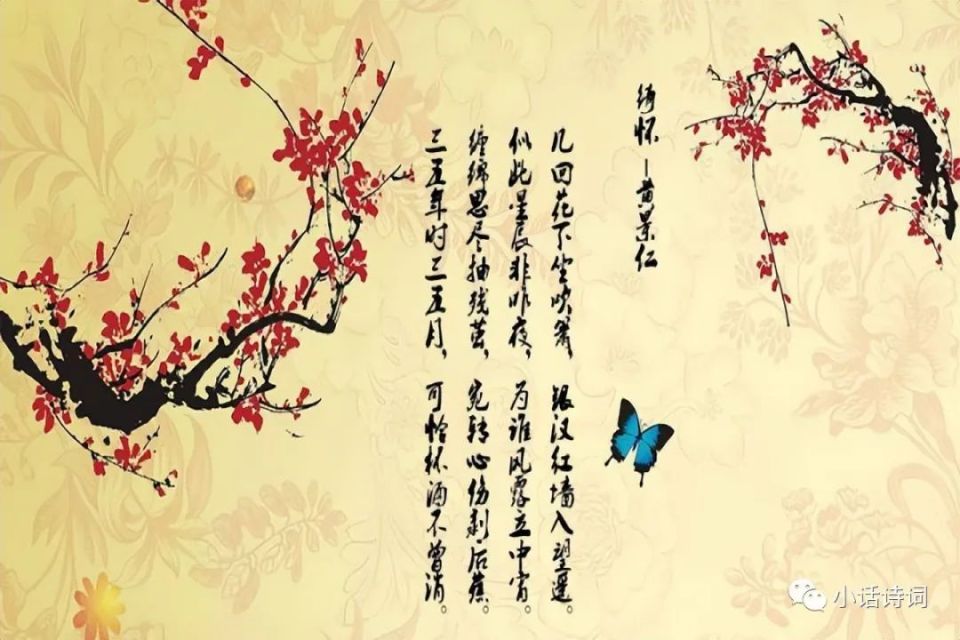 绮怀 —黄景仁
几回花下坐吹箫，银汉红墙入望遥。
似此星辰非昨夜，为谁风露立中宵。
缠绵思尽抽残茧，宛转心伤剥后蕉。
三五年时三五月，可怜杯酒不曾消。
小话诗词